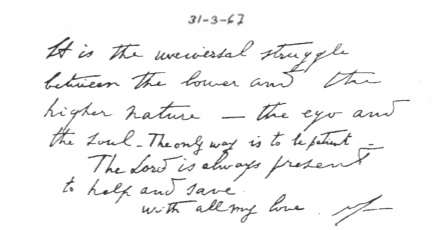 31-3-67
It is the universal struggle
between the lower and the
higher nature — the ego and
the soul - The only way is to be patient -
The Lord is always present
to help and save.
with all my love.